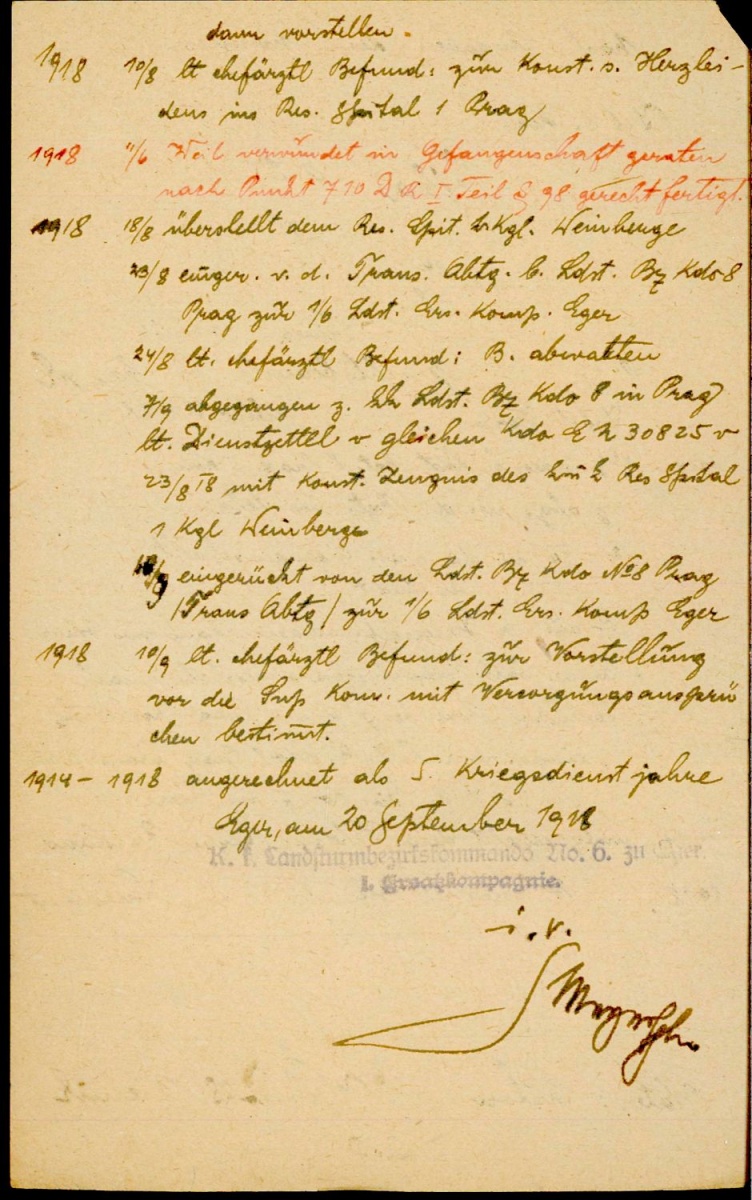 dann vorstellen.
1918 10/8 lt chefärztl Befund: zür Konst. s. Herzlei-
dens ins Res. Spital 1 Prag
1918 11/6 Weil verwündet in Gefangenschaft geraten
nach Punkt 710 D R I. Teil § 98 gerechtfertigt.
1918 18/8 überstellt dem Res. Spit. Kgl. Weinberge
23/8 einger. v. d. Trans. Abtg. b. Ldst. Bz Kdo 8
Prag zür 1/6 Ldst. Ers. Komp. Eger
24/8 lt. chefärztl Befund: B. abwarten
7/9 abgegangen z. kk Ldst. Bz Kdo 8 in Prag
lt. Dienstzettel v gleichen Kdo E N 30825 v
23/8 18 mit Konst. Zeugnis des k ü k Res Spital
1 Kgl Weinberge
10/9 eingerückt von den Ldst. Bz Kdo No 8 Prag
/Trans Abtg/ zür 1/6 Ldst. Ers. Komp Eger
1918 10/9 lt. chefärztl Befund: zür Vorstellüng
vor die Sup Kom. mit Versorgüngsansprü
chen bestim̅t.
1914 - 1918 angerechnet als 5. Kriegsdienstjahre
Eger, am 20 September 1918
K. k. Landsturmbezirkskommando No. 6. zu Eger.
1. Ersatzkompagnie.
i. v.